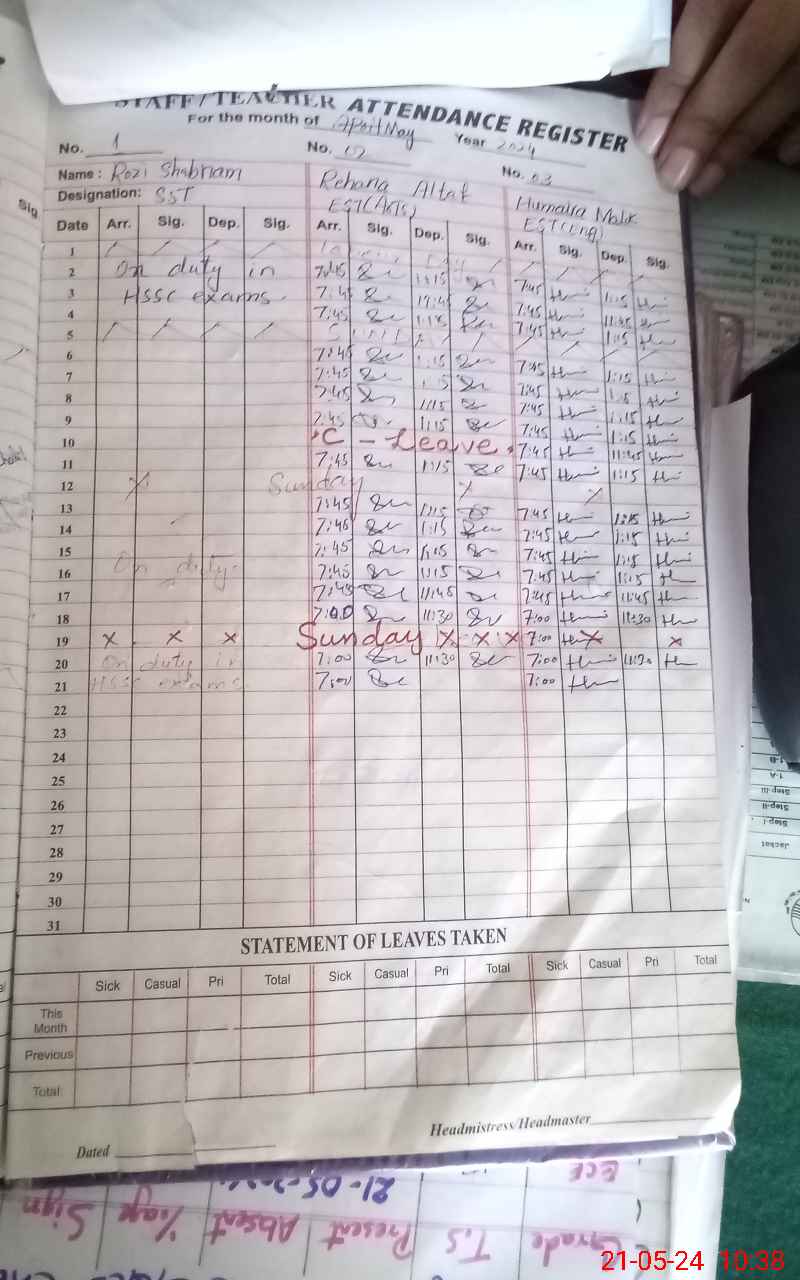 STAFF/TEACHER ATTENDANCE REGISTER
For the month of April May Year 2024
No. 1 No. 02 No. 03
Name: Rozi Shabnam Rehana Altaf Humaira Malik
Designation: SST EST(Arts) EST(Eng)
Date Arr. Sig. Dep. Sig. Arr. Sig. Dep. Sig. Arr. Sig. Dep. Sig.
1
2 On duty in 7:45 1:15 7:45 1:15
3 HSSC exams 7:45 11:45 7:45 11:45
4 7:45 1:15 7:45 1:15
5
6 7:45 1:15 7:45 1:15
7 7:45 1:15 7:45 1:15
8 7:45 1:15 7:45 1:15
9 7:45 1:15 7:45 1:15
10 C - Leave 7:45 11:45
11 7:45 1:15 7:45 1:15
12 Sunday
13 7:45 1:15 7:45 1:15
14 7:45 1:15 7:45 1:15
15 7:45 1:15 7:45 1:15
16 On duty 7:45 1:15 7:45 1:15
17 7:45 11:45 7:45 11:45
18 7:00 11:30 7:00 11:30
19 x x x Sunday x x x 7:00 x x
20 On duty in 7:00 11:30 7:00 11:30
21 HSSC exams 7:00 7:00
22
23
24
25
26
27
28
29
30
31
STATEMENT OF LEAVES TAKEN
Sick Casual Pri Total Sick Casual Pri Total Sick Casual Pri Total
This
Month
Previous
Total
Dated Headmistress/Headmaster
ECE
21-05-2024
Grade T.S Present Absent %age Sign
21-05-24 10:38